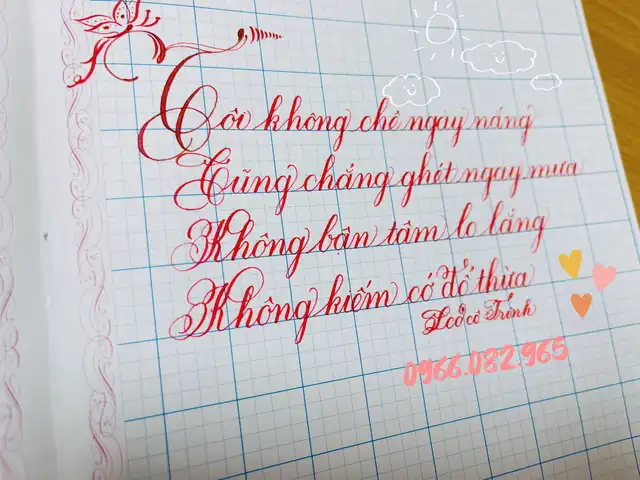 Tôi không chê ngày nắng
Cũng chẳng ghét ngày mưa
Không bận tâm lo lắng
Không kiếm cớ đổ thừa
cô Trinh
0966.082.965